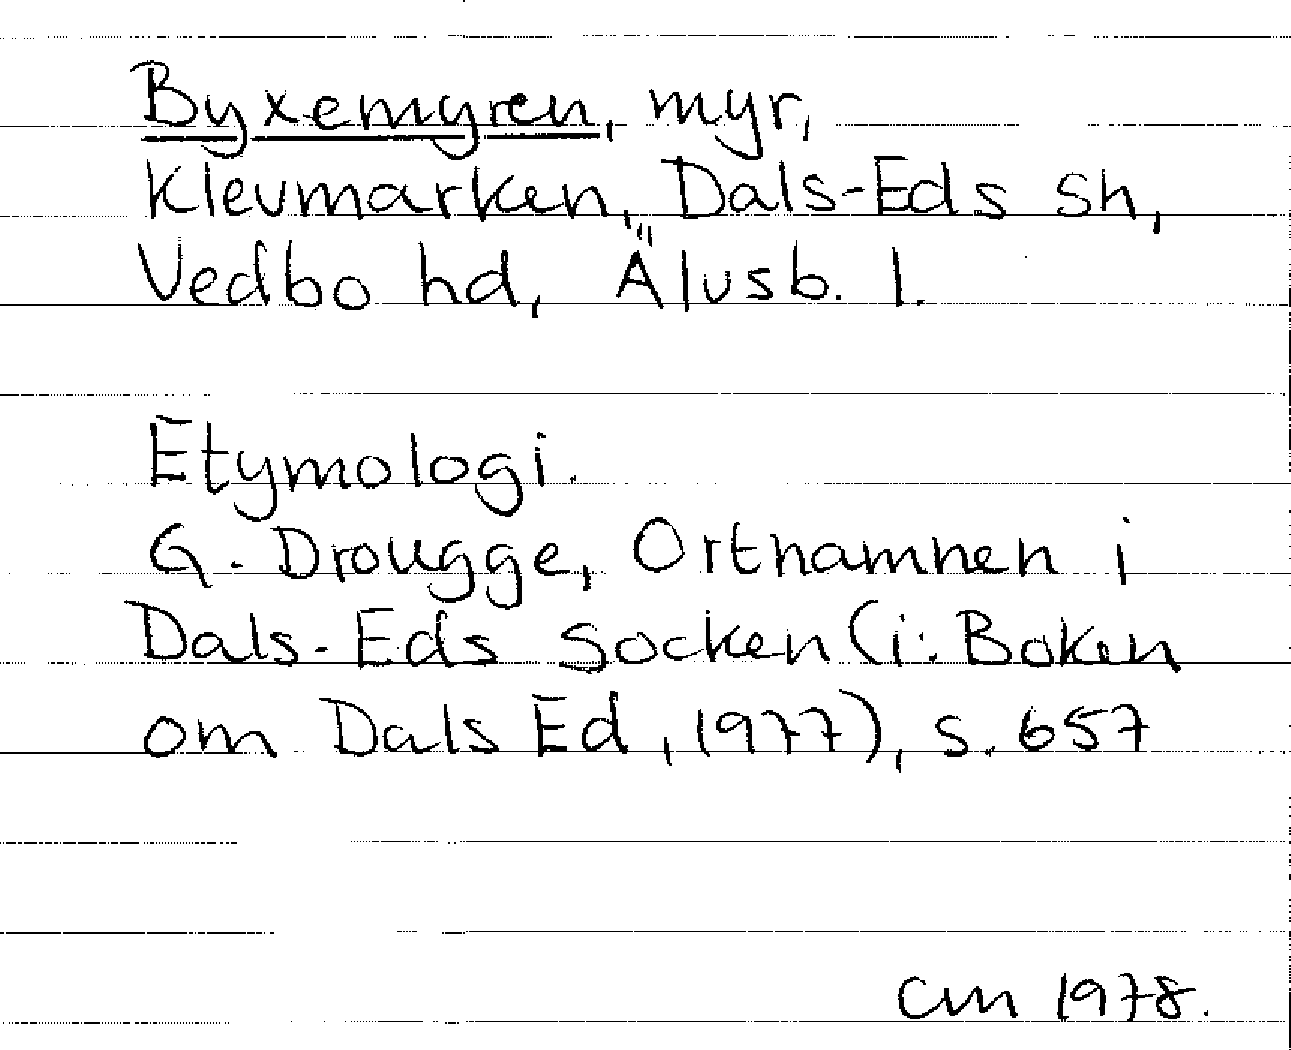 Byxemyren, myr,
Klevmarken, Dals-Eds sn,
Vedbo hd, Älvsb. l.
Etymologi.
G. Drougge, Ortnamnen i
Dals-Eds socken (i: Boken
om Dals Ed, 1977), s. 657
CM 1978.